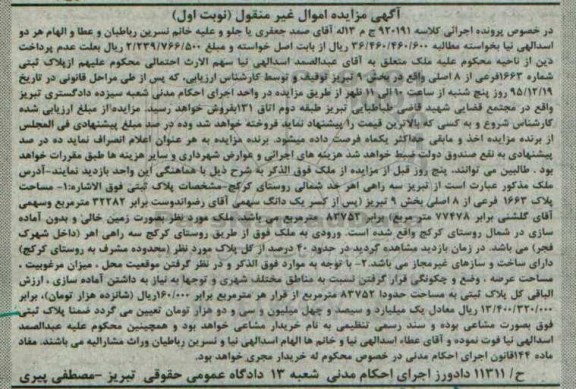 آگهی مزایده اموال غیر منقول (نوبت اول)
در خصوص پرونده اجرائی کلاسه ۹۲۰۱۹۱ ج م ۱۳له آقای صمد جعفری یا جلو و علیه خانم نسرین رباطیان و عطا و الهام هر دو
اسدالهی نیا بخواسته مطالبه ۳۶/۴۶۰/۴۶۰/۶۰۰ ریال از بابت اصل خواسته و مبلغ ۲/۲۳۹/۷۶۶/۵۰۰ ریال بعلت عدم پرداخت
دین از ناحیه محکوم علیه ملک متعلق به آقای عبدالصمد اسدالهی نیا سهم الارث احتمالی محکوم علیهم ازپلاک ثبتی
شماره ۱۶۶۳فرعی از ۸ اصلی واقع در بخش ۹ تبریز توقیف و توسط کارشناس ارزیابی، که پس از طی مراحل قانونی در تاریخ
۹۵/۱۲/۱۹ روز پنج شنبه از ساعت ۱۰ الی ۱۱ ظهر از طریق مزایده در واحد اجرای احکام مدنی شعبه سیزده دادگستری تبریز
واقع در مجتمع قضایی شهید قاضی طباطبایی تبریز طبقه دوم اتاق ۱۳۱بفروش خواهد رسید. مزایده‌از مبلغ ارزیابی شده
کارشناس شروع و به کسی که بالاترین قیمت را پیشنهاد نماید فروخته خواهد شد وده در صد مبلغ پیشنهادی فی المجلس
از برنده مزایده اخذ و مابقی حداکثر یکماه فرصت داده میشود. برنده مزایده به هر عنوان اعلام انصراف نماید ده در صد
پیشنهادی به نفع صندوق دولت ضبط خواهد شد هزینه های اجرائی و عوارض شهرداری و سایر هزینه ها طبق مقررات خواهد
بود . طالبین می توانند، پنج روز قبل از مزایده از ملک فوق الذکر به شرح ذیل با هماهنگی این واحد بازدید نمایند-آدرس
ملک مذکور عبارت است از تبریز سه راهی اهر حد شمالی روستای کرکج-مشخصات پلاک ثبتی فوق الاشاره:۱- مساحت
پلاک ۱۶۶۳ فرعی از ۸ اصلی بخش ۹ تبریز (پس از کسر یک دانگ سهمی آقای رضوانپوست برابر ۳۲۲۸۲ مترمربع وسهمی
آقای گلشنی برابر ۷۷۴۷۸ متر مربع) برابر ۸۳۷۵۲ مترمربع می باشد. ملک مورد نظر بصورت زمین خالی و بدون آماده
سازی در شمال روستای کرکج واقع شده است. ورودی به ملک فوق از طریق روستای کرکج سه راهی اهر (داخل شهرک
فجر) می باشد. در زمان بازدید مشاهده گردید در حدود ۴۰ درصد از کل پلاک مورد نظر (محدوده مشرف به روستای کرکج)
دارای ساخت و سازهای غیرمجاز می باشد.۲- با توجه به موارد فوق الذکر و در نظر گرفتن موقعیت محل ، میزان مرغوبیت ،
مساحت عرصه ، وضع و چگونگی قرار گرفتن نسبت به مناطق مختلف شهری و توجها به نیاز به داشتن آماده سازی ، ارزش
الباقی کل پلاک ثبتی به مساحت حدودا ۸۳۷۵۲ مترمربع از قرار هر مترمربع برابر ۱۶۰/۰۰۰ریال (شانزده هزار تومان)، برابر
۱۳/۴۰۰/۳۲۰/۰۰۰ ریال معادل یک میلیارد و سیصد و چهل میلیون و سی و دو هزار تومان تعیین می گردد ضمنا پلاک ثبتی
فوق بصورت مشاعی بوده و سند رسمی تنظیمی به نام خریدار مشاعی خواهد بود و همچنین محکوم علیه عبدالصمد
اسدالهی نیا فوت نموده و آقای عطاء اسدالهی نیا و خانم ها الهام اسدالهی نیا و نسرین رباطیان وراث مشارالیه می باشند. مفاد
ماده ۱۴۴قانون اجرای احکام مدنی در خصوص محکوم له خریدار مجری خواهد بود.
ح/ ۱۱۳۱۱ دادورز اجرای احکام مدنی شعبه ۱۳ دادگاه عمومی حقوقی تبریز -مصطفی پیری